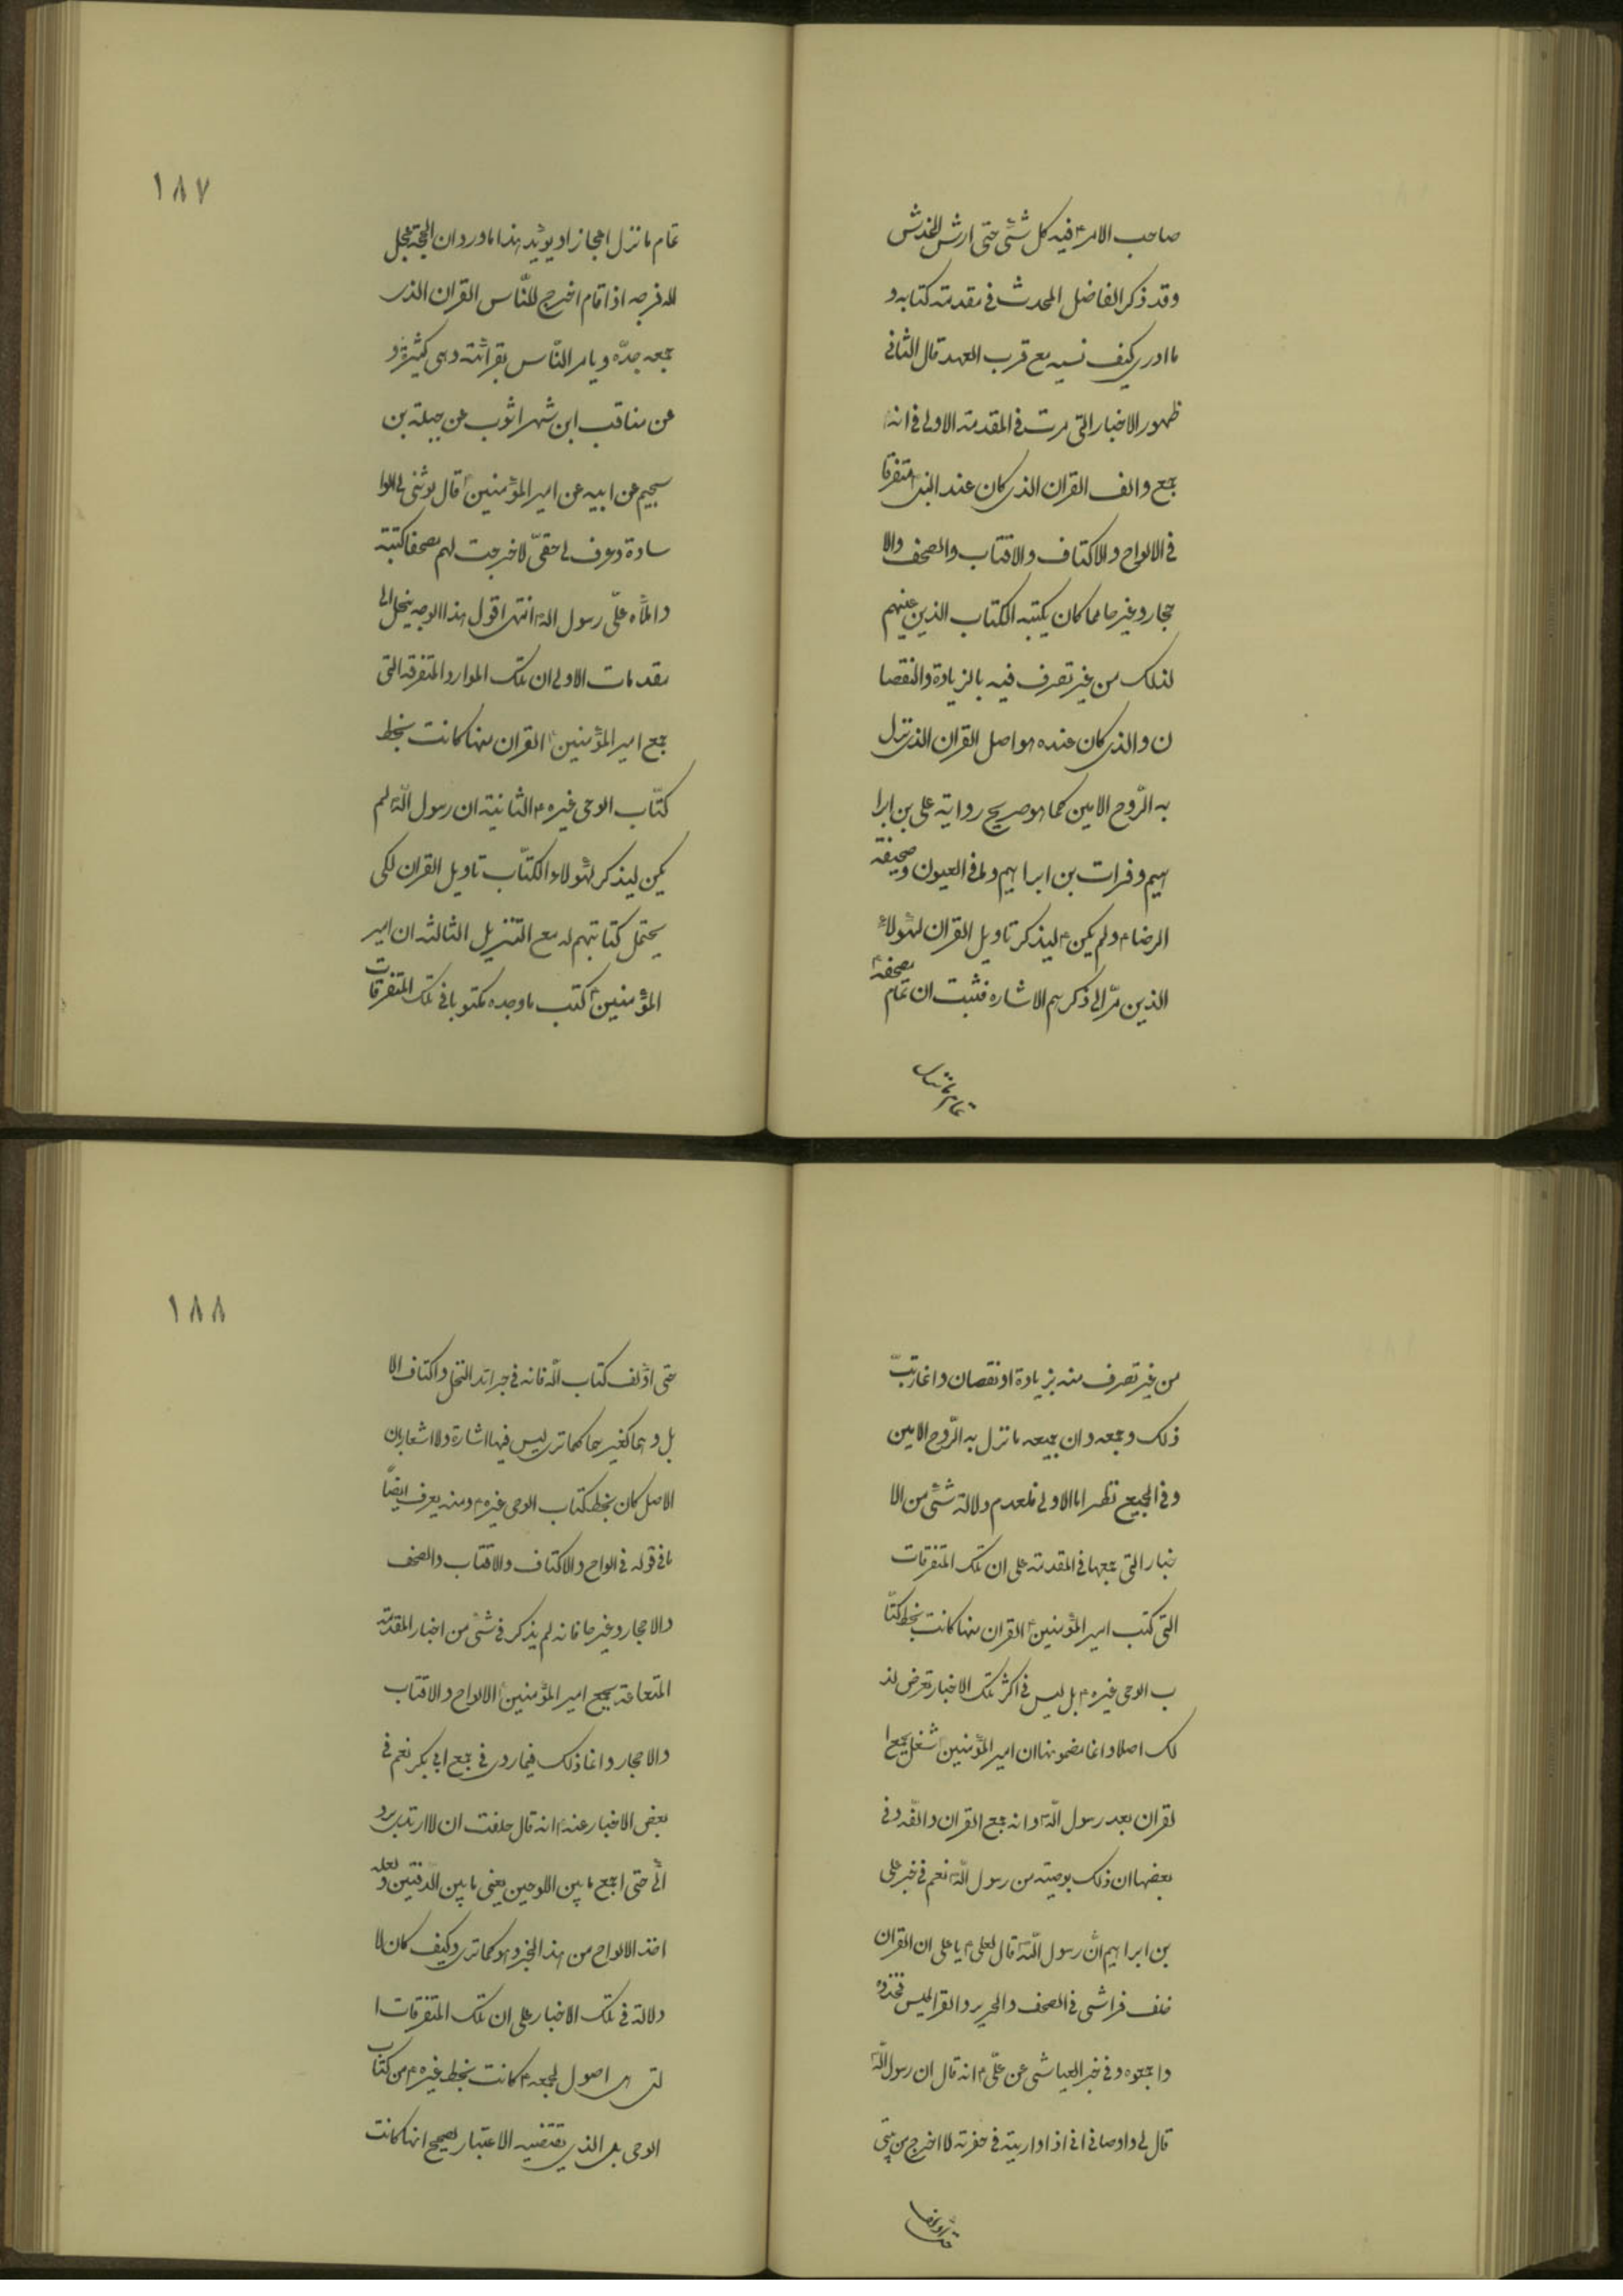 صاحب الامر۴ فيه كل شئ حتى ارش الخدش
وقد ذكر الفاضل المحدث فى مقدمة كتابه و
ما ادرى كيف نسيه مع قرب العهد قال الثانى
ظهور الاخبار التى مرت فى المقدمة الاولى فى انه
جمع والف القران الذى كان عند النبى متفرقا
فى الالواح والاكتاف والاقتاب والصحف والا
حجار وغيرها مما كان يكتبه الكتاب الذين عينهم
لذلك من غير تصرف فيه بالزيادة والنقصا
ن والذى كان عنده هو اصل القران الذى نزل
به الرّوح الامين كما هو صريح رواية على بن ابرا
هيم وفرات بن ابراهيم و فى العيون وصحيفة
الرضا۴ ولم يكن۴ ليذكر تاويل القران لهؤلاء
الذين مرّ الى ذكرهم الاشاره فثبت ان تمام مصحفه
تمام ما نزل
١٨٧
تمام ما نزل اعجازا ويؤيد هذا ما ورد ان الحجة عجل
الله فرجه اذا قام اخرج للنّاس القران الذى
جمعه جدّه ويامر النّاس بقرائته وهى كثيرة و
عن مناقب ابن شهراشوب عن جبلة بن
سحيم عن ابيه عن امير المؤمنين قال لو ثنى لى الو
سادة وعرف لى حقّى لاخرجت لهم مصحفا كتبته
واملاه علّى رسول الله انتهى اقول هذا الوجه ينحل الى
مقدمات الاولى ان تلك الموارد المتفرقه التى
جمع امير المؤمنين القران منها كانت بخط
كتّاب الوحى غيره۴ الثانية ان رسول اللّه لم
يكن ليذكر لهؤلاء الكتّاب تاويل القران لكى
يحتمل كتابتهم له مع التنزيل الثالثه ان امير
المؤمنين كتب ما وجده مكتوبا فى تلك المتفرقات
من غير تصرف منه بزيادة او نقصان وانما رتبّ
ذلك وجمعه وان جميعه ما نزل به الرّوح الامين
وفى الجميع نظر اما الاولى فلعدم دلالة شئ من الا
خبار التى جمعها فى المقدمة على ان تلك المتفرقات
التى كتب امير المؤمنين القران منها كانت بخط كتّا
ب الوحى غيره۴ بل ليس فى اكثر تلك الاخبار تعرض لذ
لك اصلا وانما مضمونها ان امير المؤمنين شغل بجمع ا
لقران بعد رسول اللّه وانه جمع القران والّفه وفى
بعضها ان ذلك بوصية من رسول اللّه نعم فى خبر على
بن ابراهيم انّ رسول اللّه قال لعلى۴ يا على ان القران
خلف فراشى فى الصحف والحرير والقراطيس فخذوه
واجمعوه وفى خبر العياشى عن علّى۴ انه قال ان رسول اللّه
قال لى واوصانى اذا واريته فى حفرته لا اخرج من بيتى
حتى اؤلف
١٨٨
حتى اؤلف كتاب اللّه فانه فى جرائد النخل واكتاف الا
بل وهما كغيرهما كما ترى ليس فيها اشارة ولا اشعار بان
الاصل كان بخط كتاب الوحى غيره۴ ومنه يعرف ايضاً
ما فى قوله فى الواح والاكتاف والاقتاب والصحف
والاحجار وغيرها فانه لم يذكر فى شئ من اخبار المقدمة
المتعلقة بجمع امير المؤمنين الالواح والاقتاب
والاحجار وانما ذلك فيما روى فى جمع ابى بكر نعم فى
بعض الاخبار عنه انه قال حلفت ان لا ارتدى برد
ائى حتى اجمع ما بين اللوحين يعنى ما بين الدّفتين ولعله
اخذ الالواح من هذا الخبر وهو كما ترى وكيف كان لا
دلالة فى تلك الاخبار على ان تلك المتفرقات ا
لتى هى اصول لجمعه۴ كانت بخط غيره۴ من كتاب
الوحى بل الذى يقتضيه الاعتبار الصحيح انها كانت